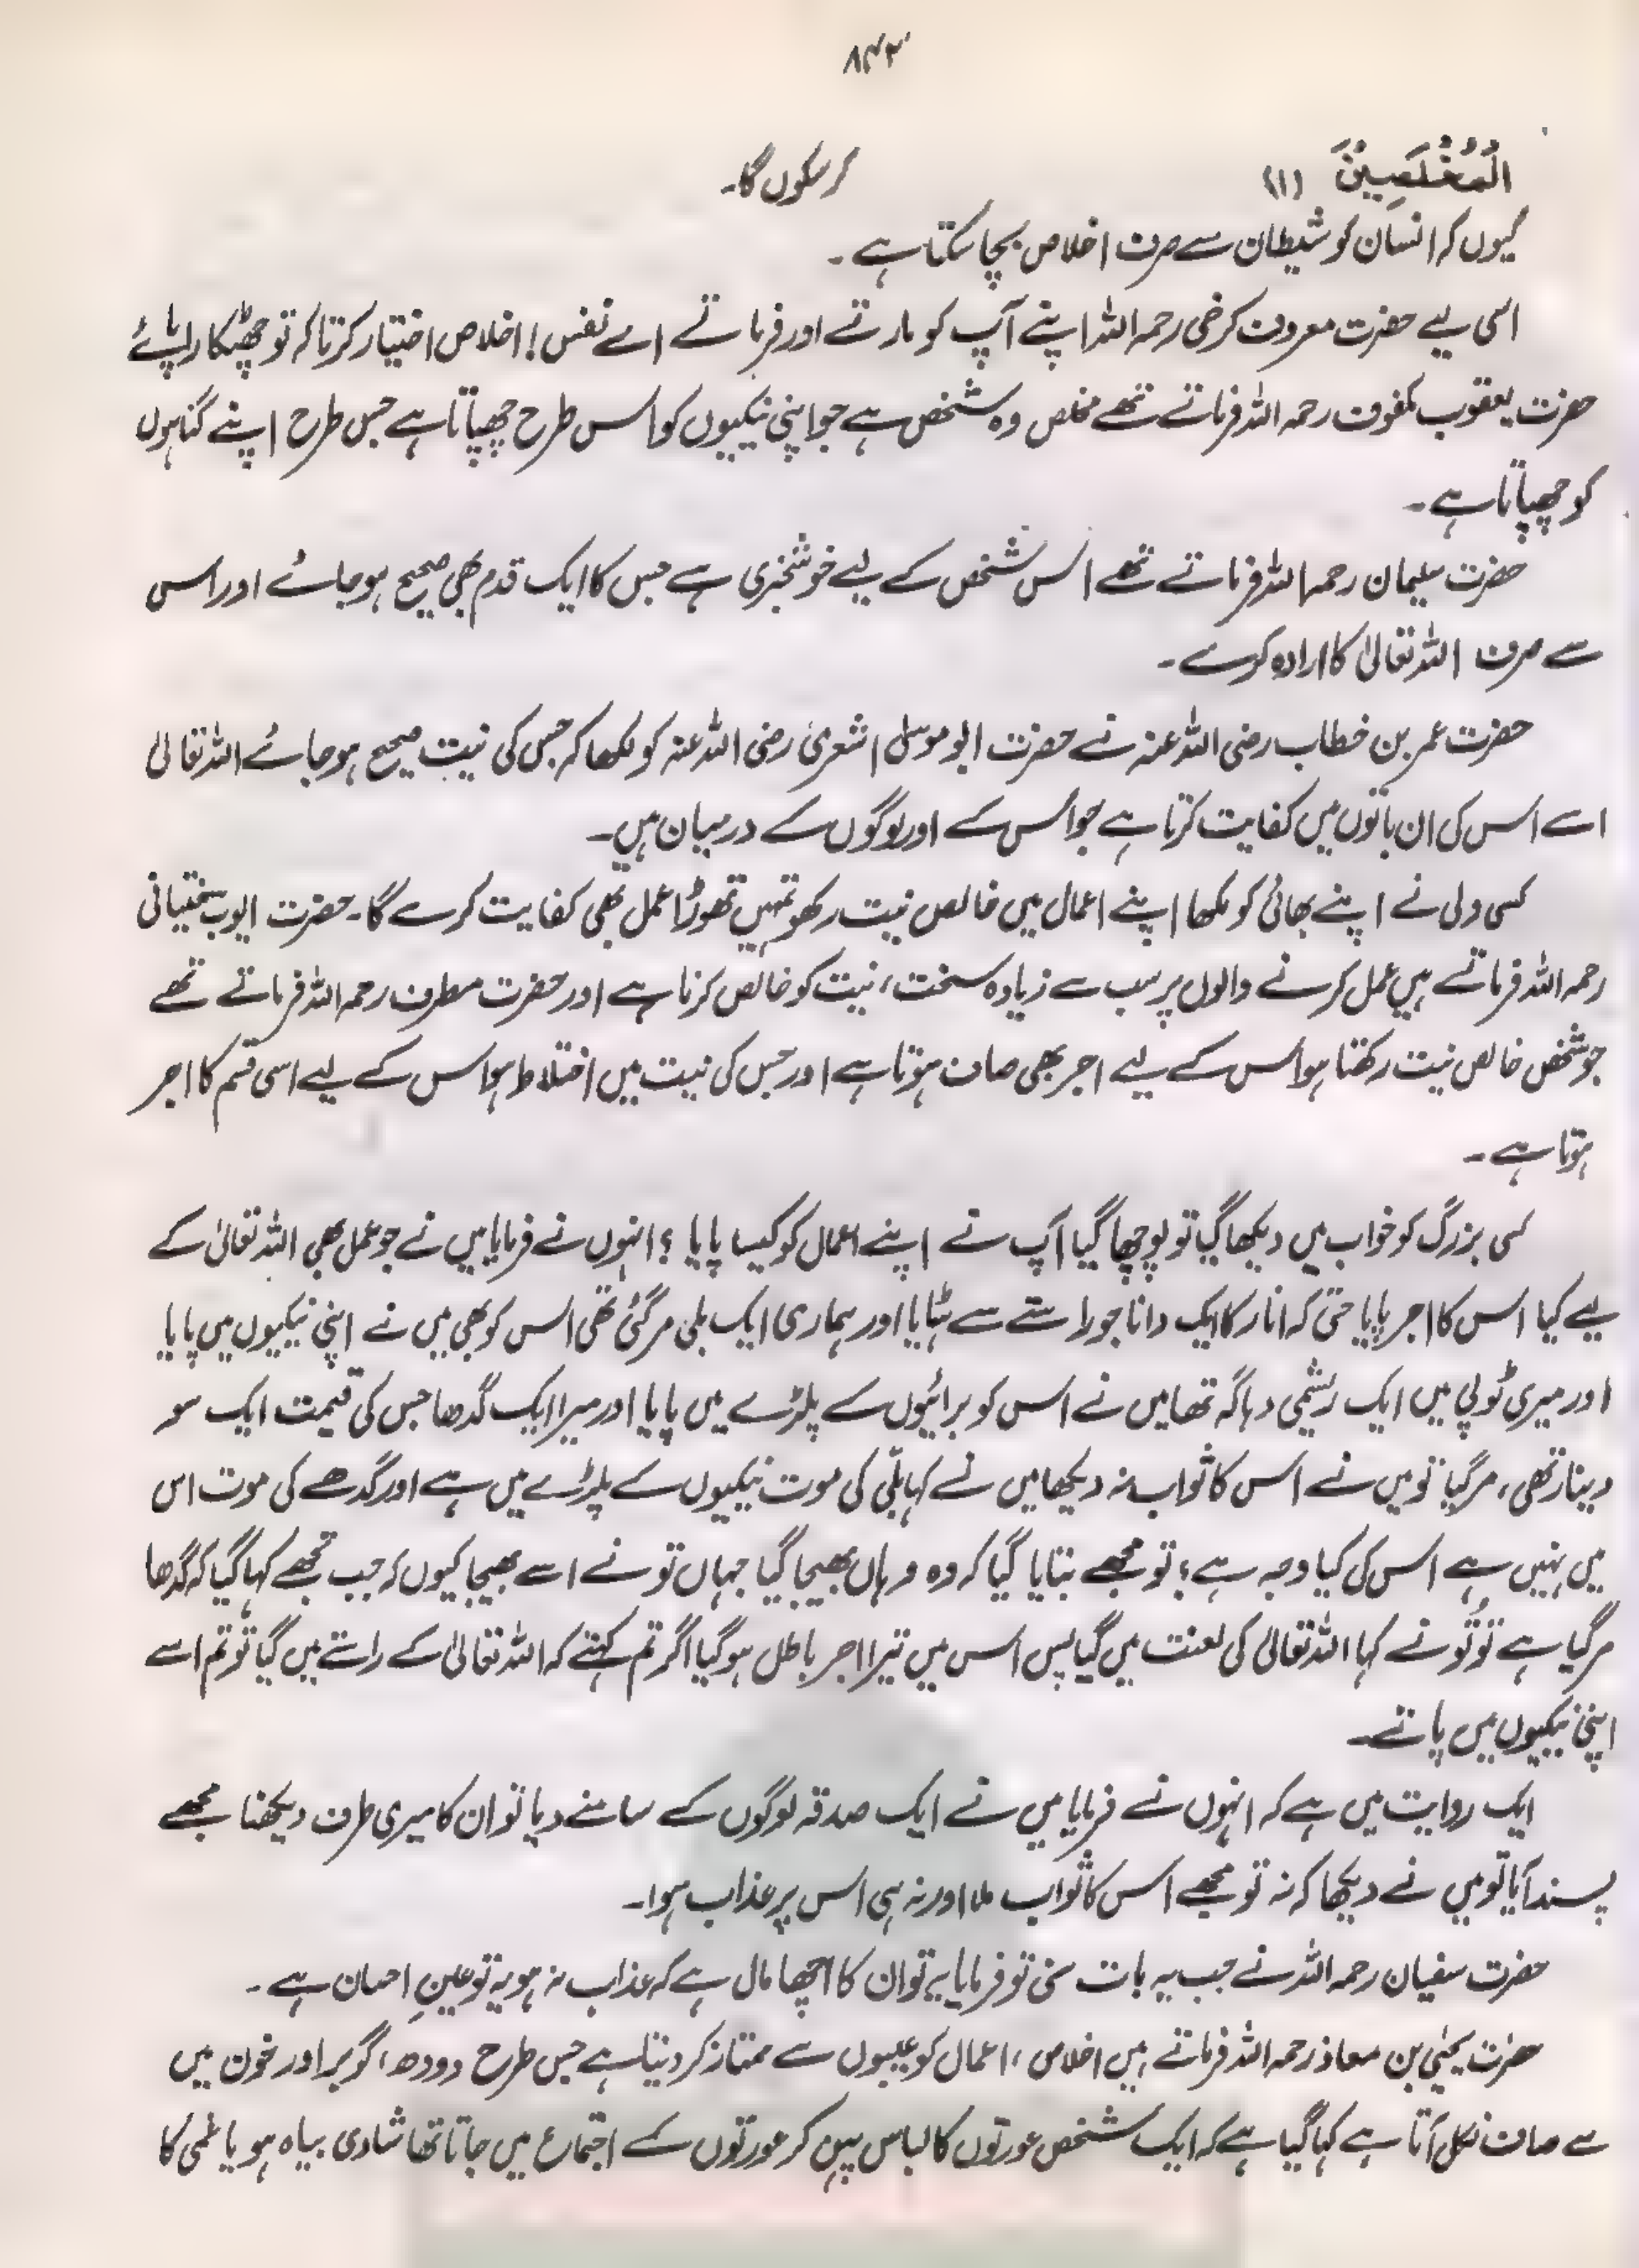 ۸۴۲
الْمُخْلَصِيْنَ (۱) کرسکوں گا۔
کیوں کہ انسان کو شیطان سے صرف اخلاص بچا سکتا ہے۔
اسی لیے حضرت معروف کرخی رحمہ اللہ اپنے آپ کو مارتے اور فرماتے اے نفس! اخلاص اختیار کر تاکہ تو چھٹکارا پائے
حضرت یعقوب مکفوف رحمہ اللہ فرماتے تھے مخلص وہ شخص ہے جو اپنی نیکیوں کو اس طرح چھپاتا ہے جس طرح اپنے گناہوں
کو چھپاتا ہے۔
حضرت سلیمان رحمہ اللہ فرماتے تھے اس شخص کے لیے خوشخبری ہے جس کا ایک قدم بھی صحیح ہوجائے اور اس
سے صرف اللہ تعالیٰ کا ارادہ کرے۔
حضرت عمر بن خطاب رضی اللہ عنہ نے حضرت ابو موسیٰ اشعری رضی اللہ عنہ کو لکھا کہ جس کی نیت صحیح ہوجائے اللہ تعالیٰ
اسے اس کی ان باتوں میں کفایت کرتا ہے جو اس کے اور لوگوں کے درمیان ہیں۔
کسی ولی نے اپنے بھائی کو لکھا اپنے اعمال میں خالص نیت رکھو تمہیں تھوڑا عمل بھی کفایت کرے گا۔ حضرت ایوب سختیانی
رحمہ اللہ فرماتے ہیں عمل کرنے والوں پر سب سے زیادہ سخت، نیت کو خالص کرنا ہے اور حضرت مطرف رحمہ اللہ فرماتے تھے
جو شخص خالص نیت رکھتا ہو اس کے لیے اجر بھی صاف ہوتا ہے اور جس کی نیت میں اختلاط ہو اس کے لیے اسی قسم کا اجر
ہوتا ہے۔
کسی بزرگ کو خواب میں دیکھا گیا تو پوچھا گیا آپ نے اپنے اعمال کو کیسا پایا؟ انہوں نے فرمایا میں نے جو عمل بھی اللہ تعالیٰ کے
لیے کیا اس کا اجر پایا حتی کہ انار کا ایک دانا جو راستے سے ہٹایا اور ہماری ایک بلی مر گئی تھی اس کو بھی میں نے اپنی نیکیوں میں پایا
اور میری ٹوپی میں ایک ریشمی دہاگہ تھا میں نے اس کو برائیوں کے پلڑے میں پایا اور میرا ایک گدھا جس کی قیمت ایک سو
دینار تھی، مر گیا تو میں نے اس کا ثواب نہ دیکھا میں نے کہا بلّی کی موت نیکیوں کے پلڑے میں ہے اور گدھے کی موت اس
میں نہیں ہے اس کی کیا وجہ ہے؟ تو مجھے بتایا گیا کہ وہ وہاں بھیجا گیا جہاں تو نے اسے بھیجا کیوں کہ جب تجھے کہا گیا کہ گدھا
مر گیا ہے تو تُو نے کہا اللہ تعالیٰ کی لعنت میں گیا پس اس میں تیرا اجر باطل ہوگیا اگر تم کہتے کہ اللہ تعالیٰ کے راستے میں گیا تو تم اسے
اپنی نیکیوں میں پاتے۔
ایک روایت میں ہے کہ انہوں نے فرمایا میں نے ایک صدقہ لوگوں کے سامنے دیا تو ان کا میری طرف دیکھنا مجھے
پسند آیا تو میں نے دیکھا کہ نہ تو مجھے اس کا ثواب ملا اور نہ ہی اس پر عذاب ہوا۔
حضرت سفیان رحمہ اللہ نے جب یہ بات سنی تو فرمایا یہ تو ان کا اچھا مال ہے کہ عذاب نہ ہو یہ تو عینِ احسان ہے۔
حضرت یحییٰ بن معاذ رحمہ اللہ فرماتے ہیں اخلاص، اعمال کو عیبوں سے ممتاز کر دیتا ہے جس طرح دودھ، گوبر اور خون میں
سے صاف نکل آتا ہے کہا گیا ہے کہ ایک شخص عورتوں کا لباس پہن کر عورتوں کے اجتماع میں جاتا تھا شادی بیاہ ہو یا غمی کا